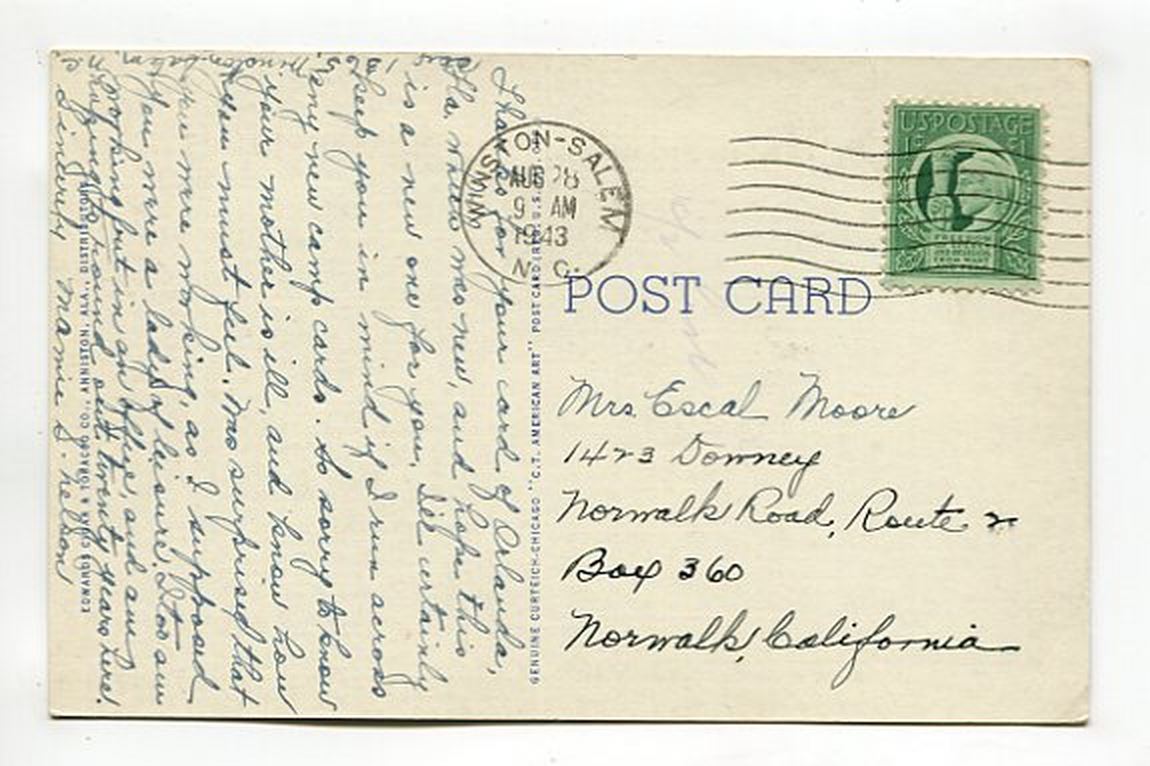 Thanks for your card of Orlando,
Fla. It was new, and hope this
is a new one for you. I'll certainly
keep you in mind if I run across
any new camp cards. So sorry to know
your mother is ill, and know how
you must feel. Was surprised that
you were working, as I supposed
you were a lady of leisure. I too am
working but in an office, and am
out twenty years here!
Sincerely Mamie S. Nelson
Winston-Salem,
N.C.
EDWARDS CIGAR & TOBACCO CO., ANNISTON, ALA., DISTRIBUTOR
GENUINE CURTEICH-CHICAGO "C.T. AMERICAN ART" POST CARD (REG. U.S.
WINSTON-SALEM
AUG 28
9 AM
1943
N. C.
U.S. POSTAGE
POST CARD
Mrs. Escal Moore
1423 Downey
Norwalk Road, Route 2
Box 360
Norwalk, California